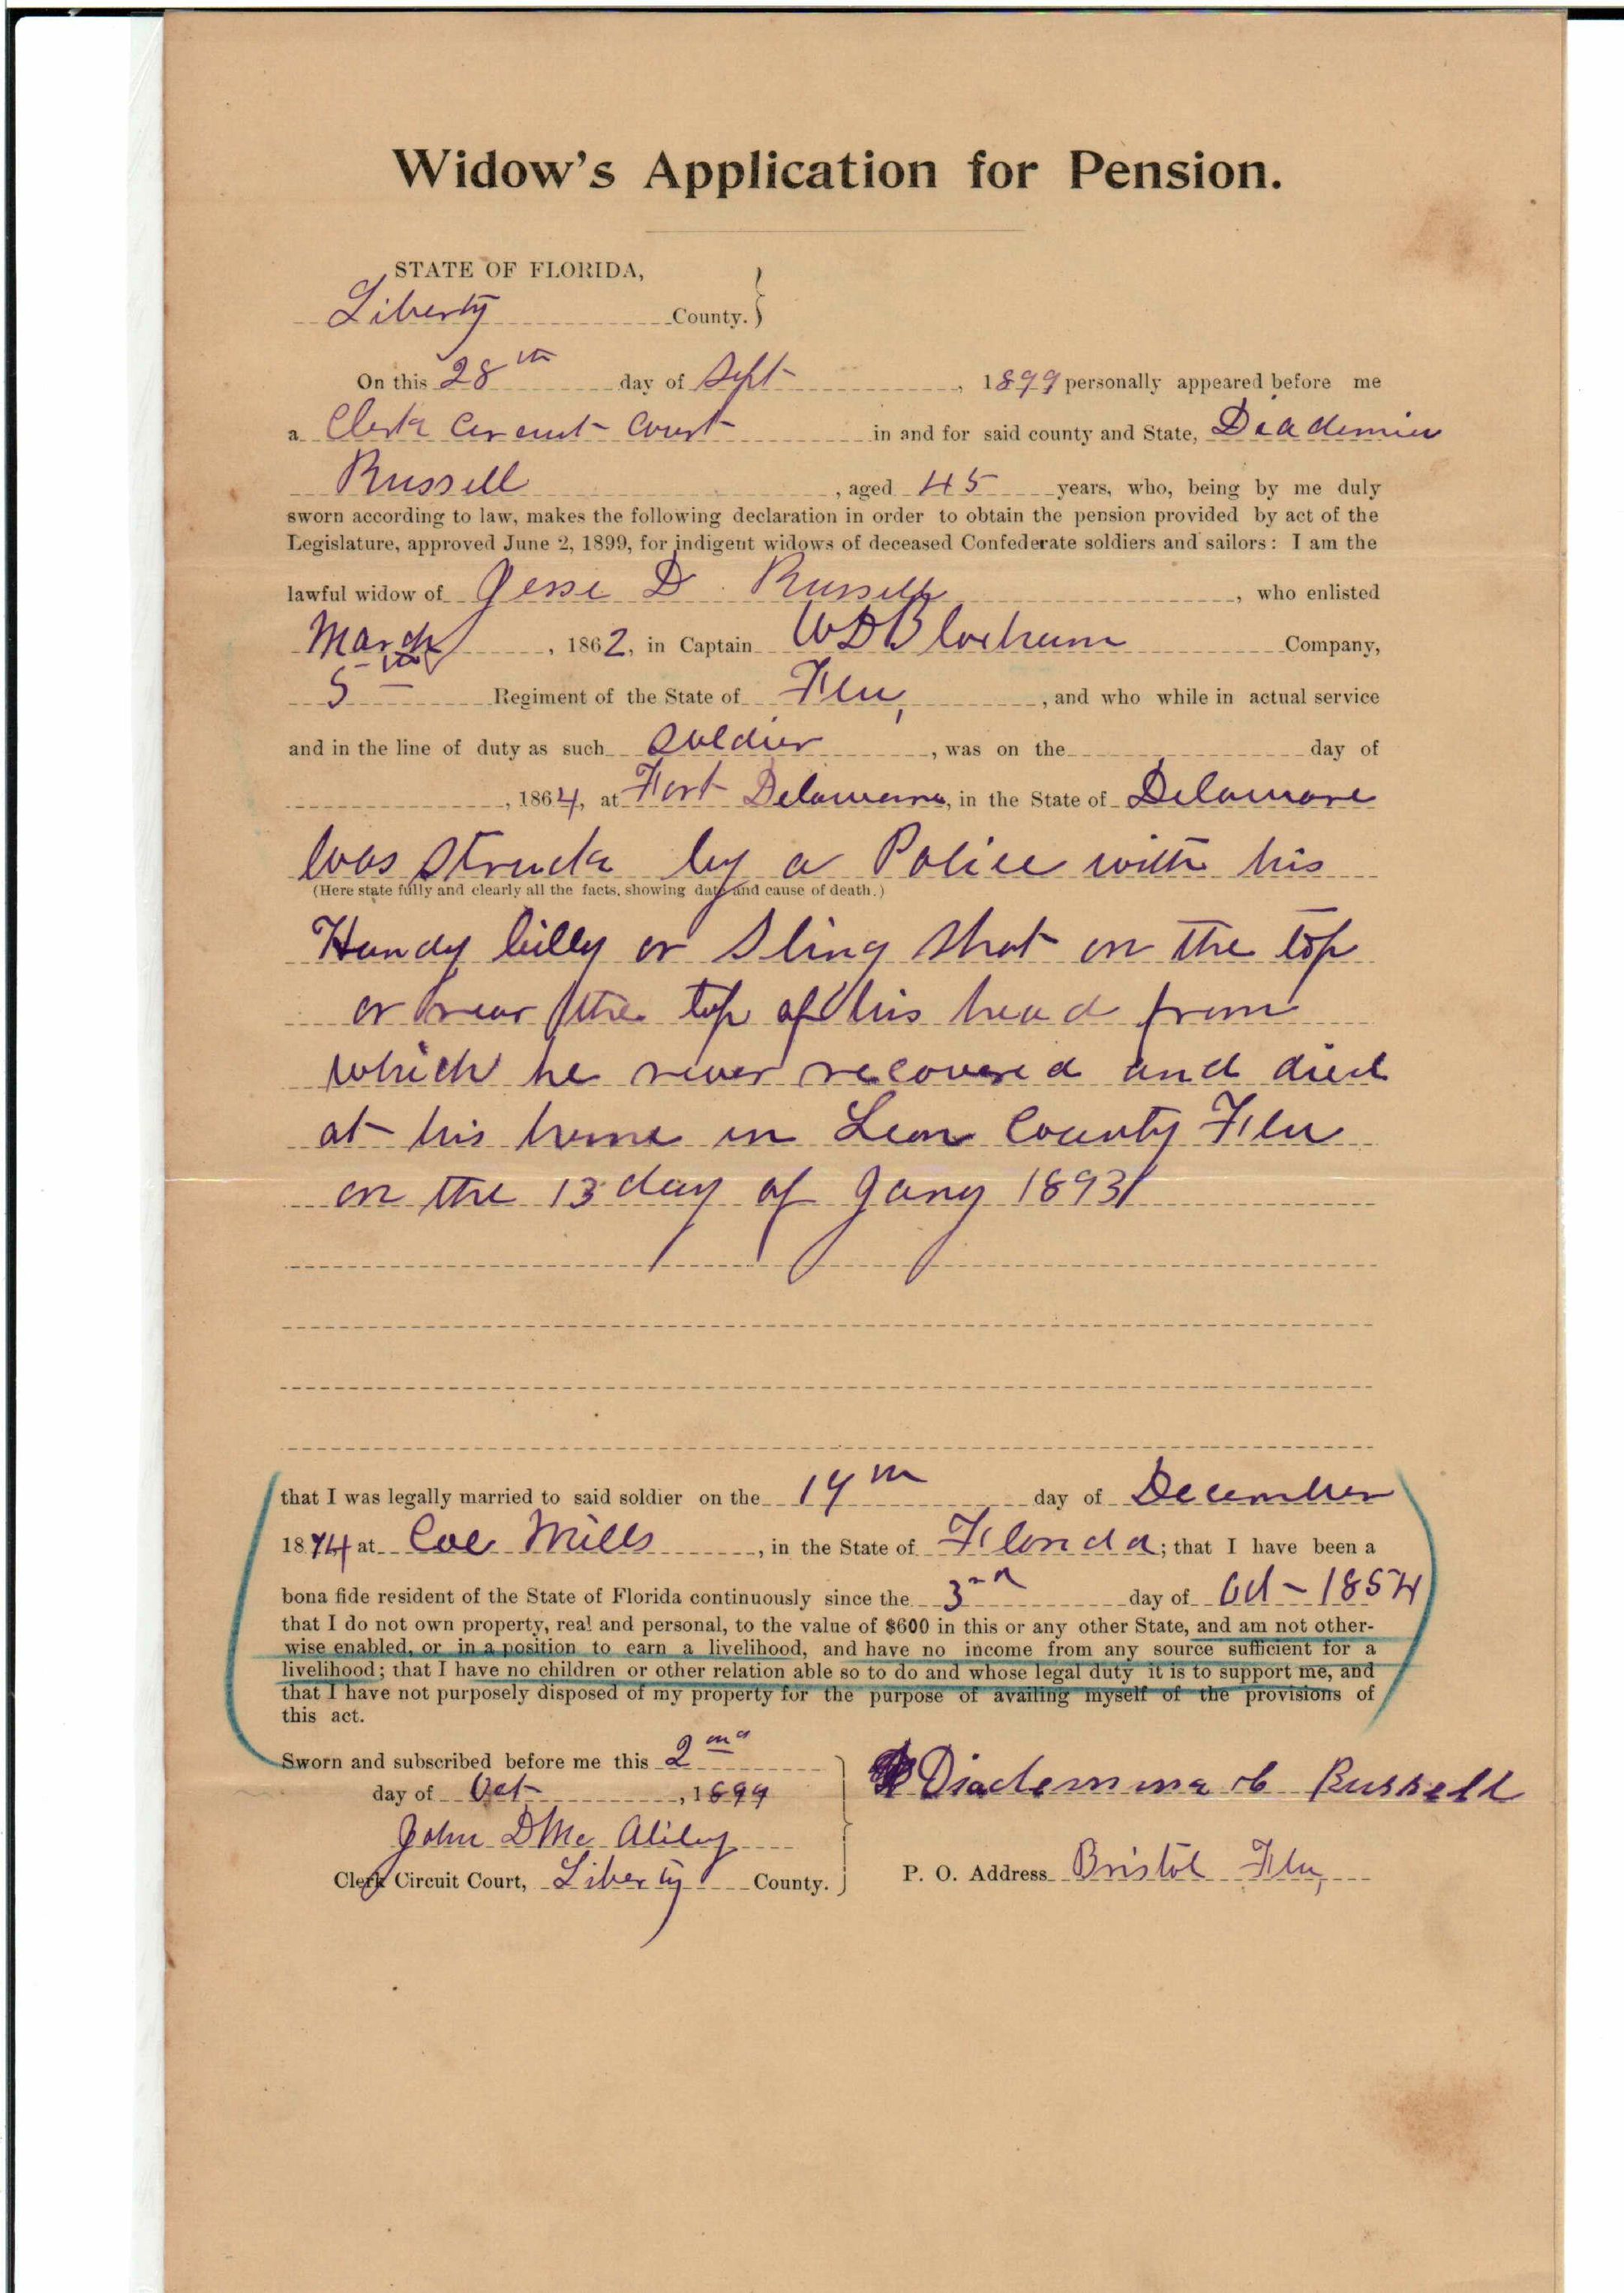 Widow's Application for Pension.
STATE OF FLORIDA,
Liberty County. }
On this 28th day of Sept, 1899 personally appeared before me
a Clerk Circuit Court in and for said county and State, Diademia
Russell, aged 45 years, who, being by me duly
sworn according to law, makes the following declaration in order to obtain the pension provided by act of the
Legislature, approved June 2, 1899, for indigent widows of deceased Confederate soldiers and sailors: I am the
lawful widow of Jesse D. Russell, who enlisted
March, 1862, in Captain W D Bloxham Company,
5th Regiment of the State of Fla, and who while in actual service
and in the line of duty as such Soldier, was on the day of
, 1864, at Fort Delaware, in the State of Delaware
Was Struck by a Police with his
(Here state fully and clearly all the facts, showing date and cause of death.)
Handy billy or Sling Shot on the top
or near the top of his head from
which he never recovered and died
at his home in Leon County Fla
on the 13 day of Jany 1893
that I was legally married to said soldier on the 14th day of December
1874 at Coe Mills, in the State of Florida; that I have been a
bona fide resident of the State of Florida continuously since the 3rd day of Oct 1854
that I do not own property, real and personal, to the value of $600 in this or any other State, and am not other-
wise enabled, or in a position to earn a livelihood, and have no income from any source sufficient for a
livelihood; that I have no children or other relation able so to do and whose legal duty it is to support me, and
that I have not purposely disposed of my property for the purpose of availing myself of the provisions of
this act.
Sworn and subscribed before me this 2nd
day of Oct, 1899
John D Mc Aliley
Clerk Circuit Court, Liberty County. }
Diademma Russell
P. O. Address Bristol Fla,